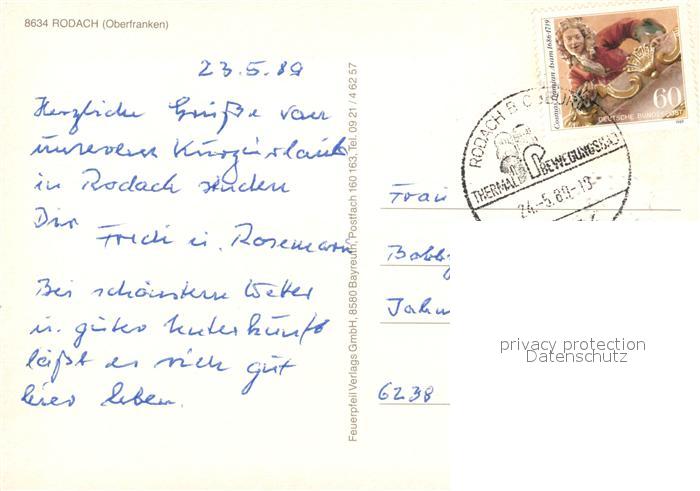 8634 RODACH (Oberfranken)
23.5.89
Herzliche Grüße von
unserem Kurzurlaub
in Rodach senden
Dir
Fredi u. Rosemarie
Bei schönstem Wetter
u. guter Unterkunft
läßt es sich gut
hier leben.
Feuerpfeil Verlags GmbH, 8580 Bayreuth, Postfach 160 163, Tel. 09 21 / 4 62 57
Cosmas Damian Asam 1686-1739
60
DEUTSCHE BUNDESPOST
RODACH B COBURG
THERMAL BEWEGUNGSBAD
24.-5.89-13
Frau
Jahn
6238
privacy protection
Datenschutz